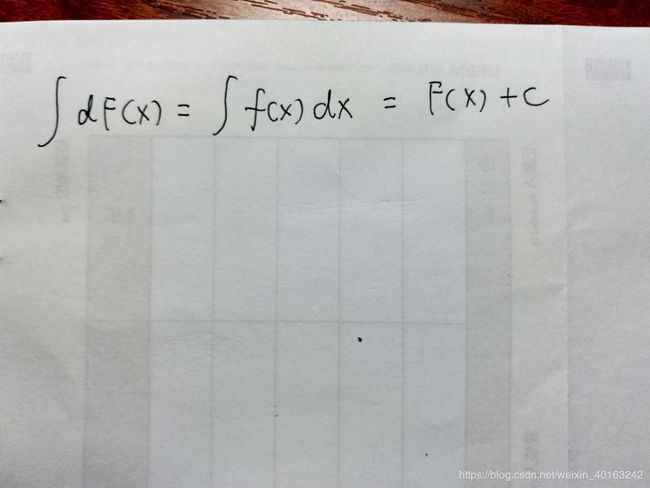 ∫ dF(x) = ∫ f(x) dx = F(x) + C
https://blog.csdn.net/weixin_40163242